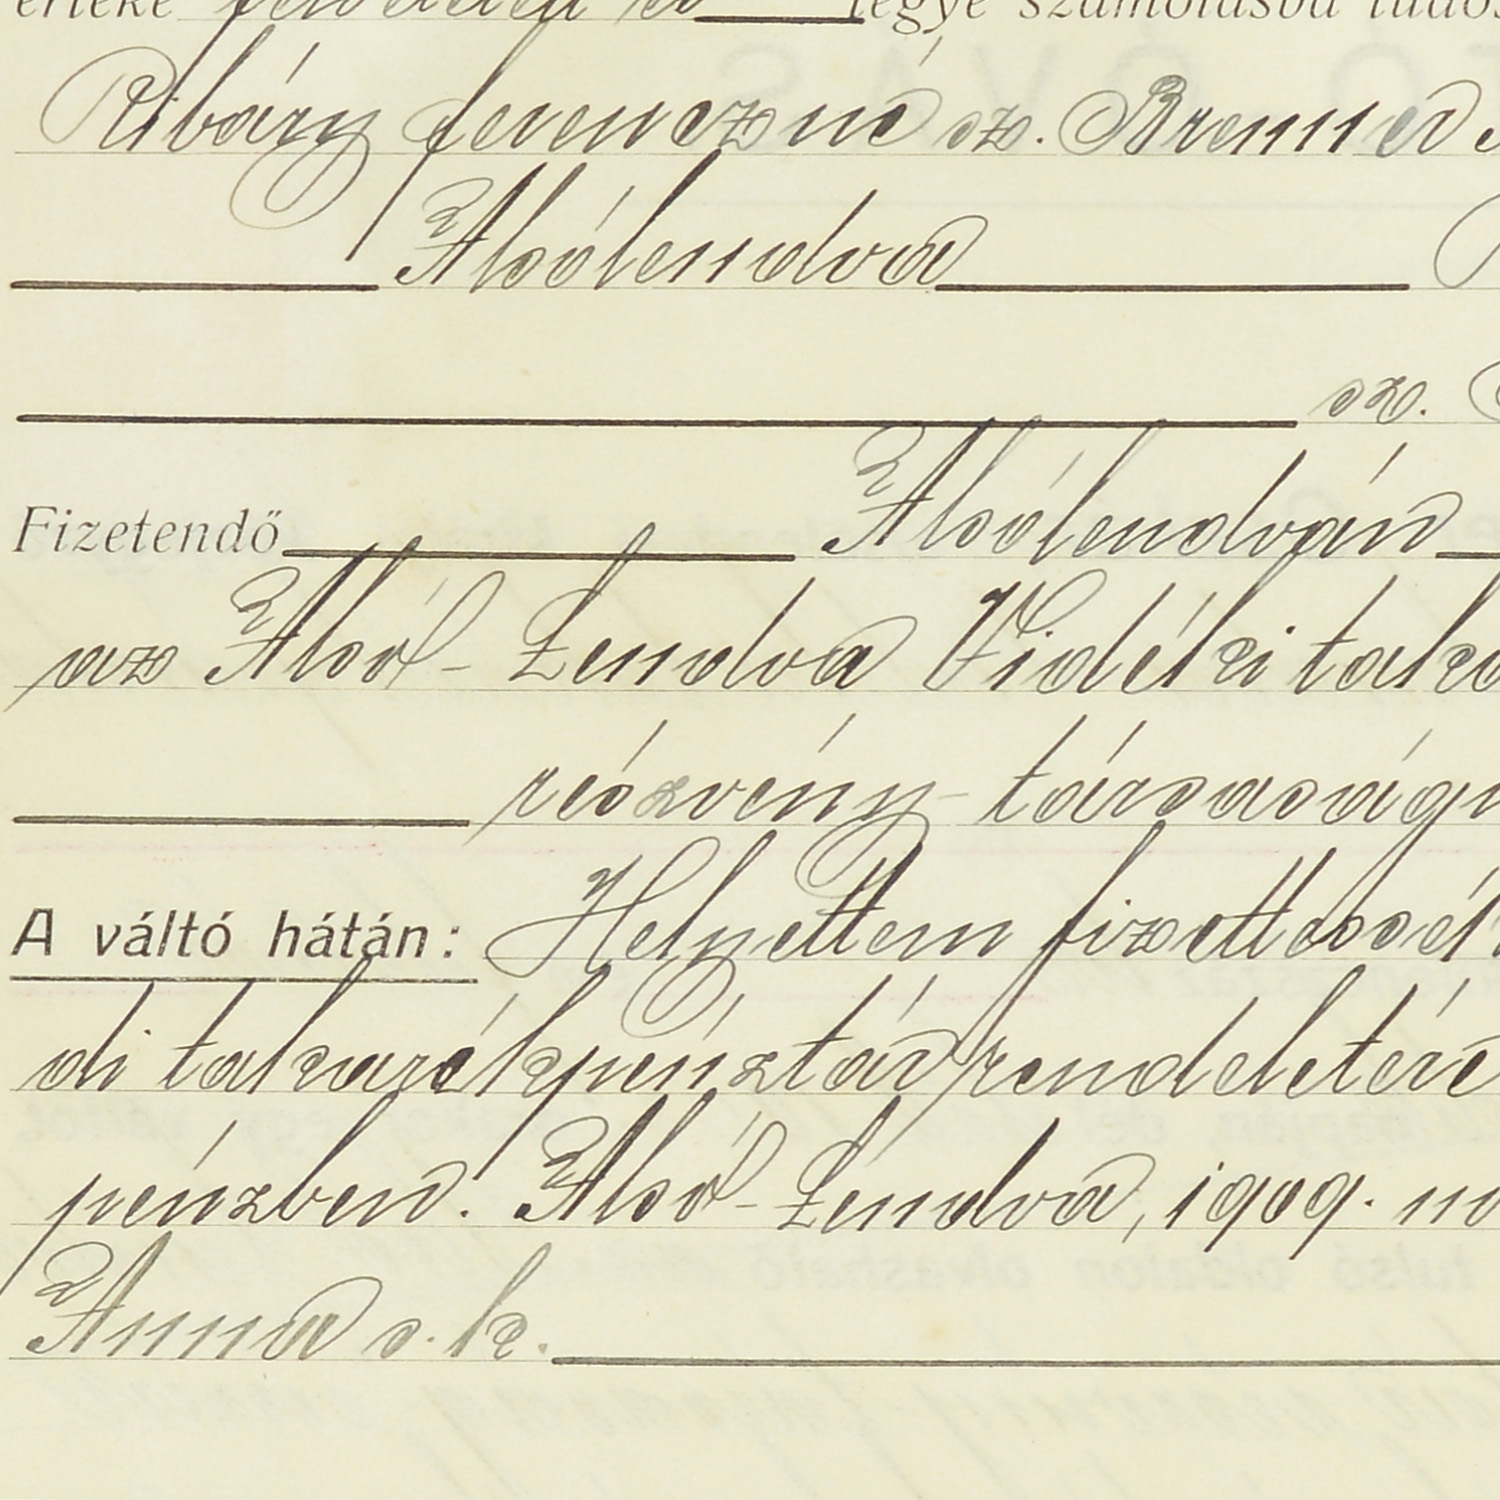 értéke legye számolásba tudós
Ribáry Ferenczné sz. Brenner
Alsólendva
sz.
Fizetendő Alsólendván
az Alsó-Lendva Vidéki taka
részvény-társaság
A váltó hátán: Helyettem fizettessék
di takarékpénztár rendeletére
pénzben. Alsó-Lendva, 1909. no
Anna s. k.